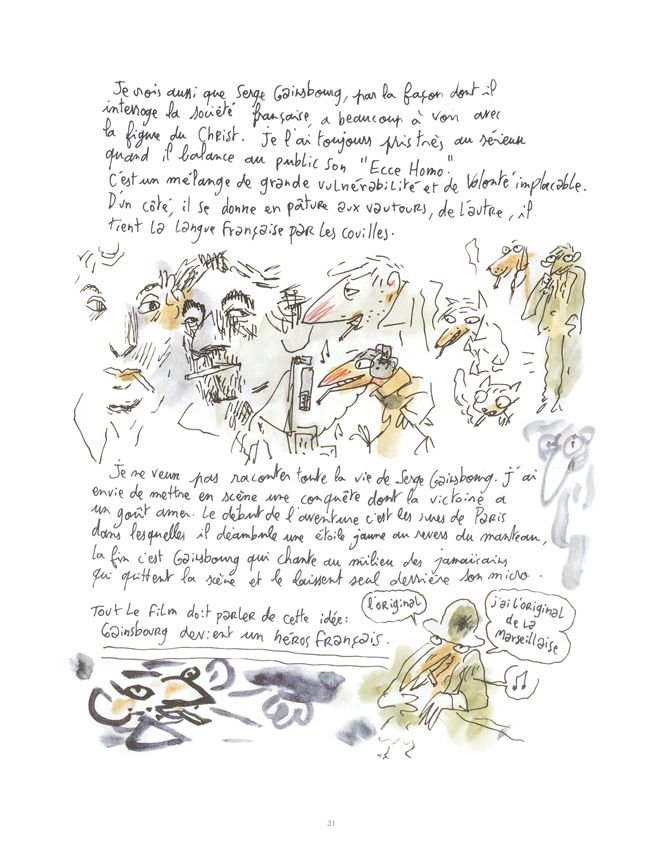 Je crois aussi que Serge Gainsbourg, par la façon dont il
interroge la société française, a beaucoup à voir avec
la figure du Christ. Je l'ai toujours pris très au sérieux
quand il balance au public son "Ecce Homo".
C'est un mélange de grande vulnérabilité et de Volonté implacable.
D'un côté, il se donne en pâture aux vautours, de l'autre, il
tient la langue française par les couilles.
Je ne veux pas raconter toute la vie de Serge Gainsbourg. J'ai
envie de mettre en scène une conquête dont la victoire a
un goût amer. Le début de l'aventure c'est les rues de Paris
dans lesquelles il déambule une étoile jaune au revers du manteau,
la fin c'est Gainsbourg qui chante au milieu des jamaïcains
qui quittent la scène et le laissent seul derrière son micro.
Tout le film doit parler de cette idée:
Gainsbourg devient un héros français.
l'original
j'ai l'original
de la
Marseillaise
21